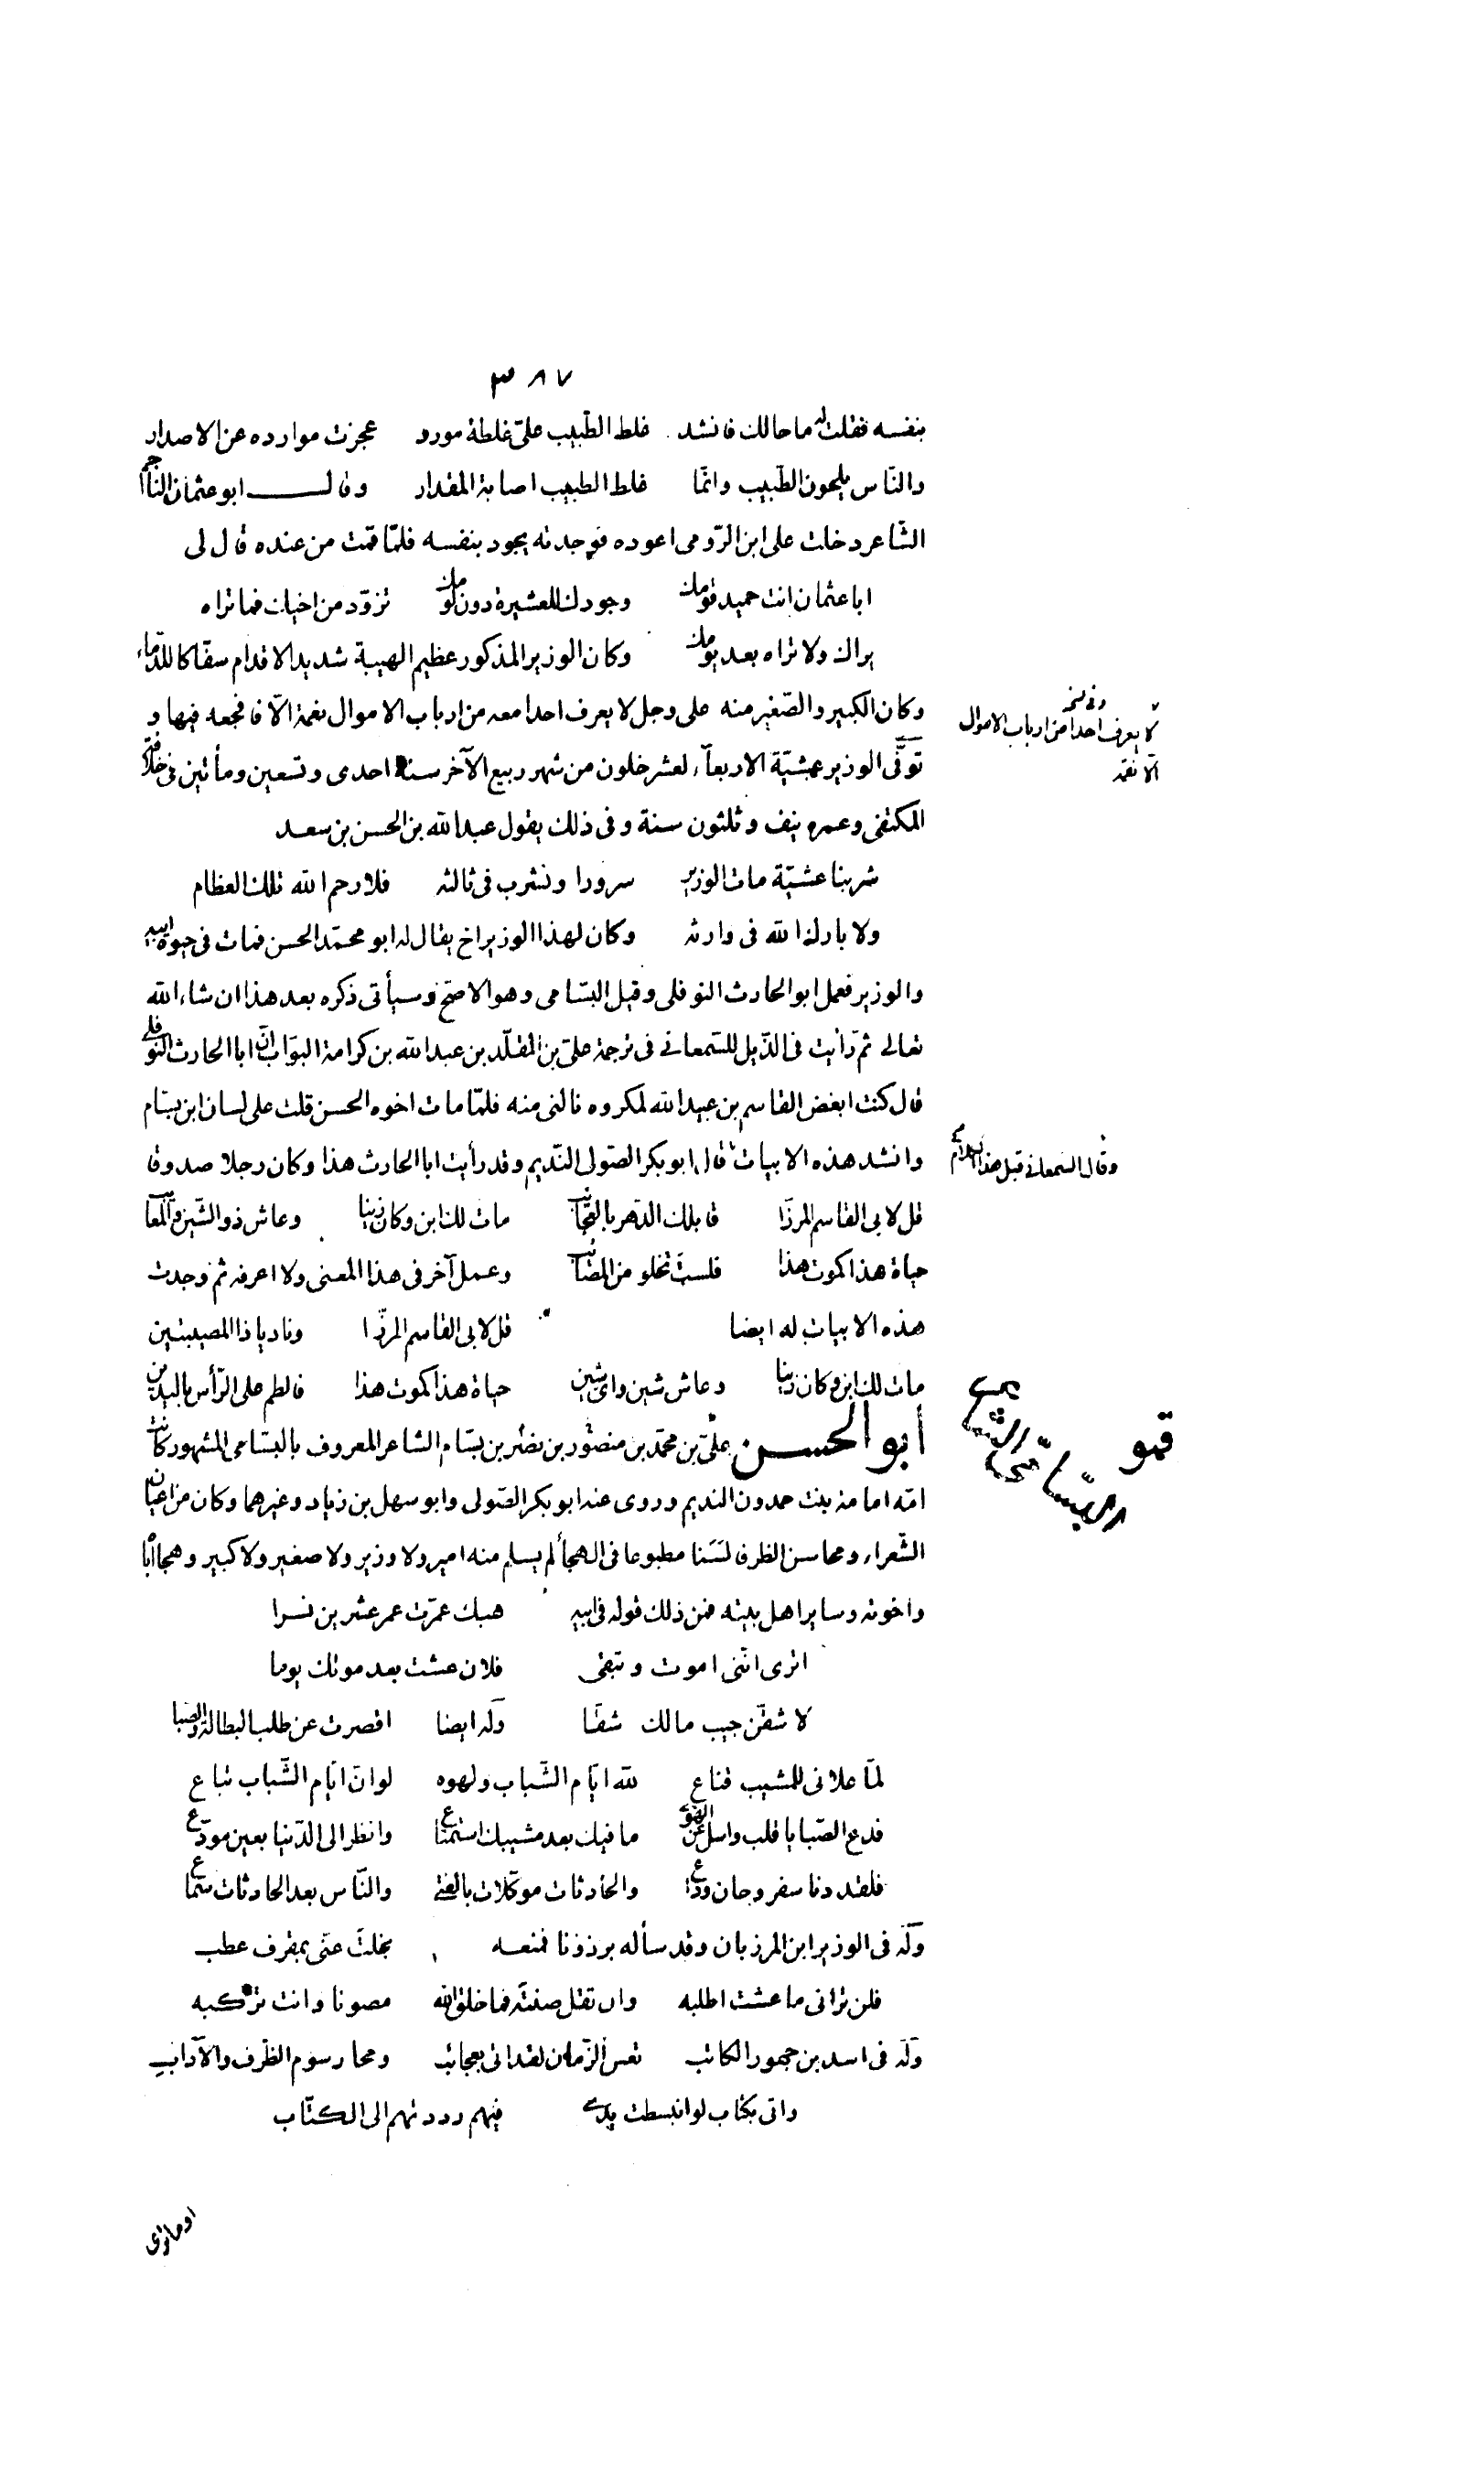 ٣٨٧
بنفسه فقلت له ما حالك فانشد غلط الطّبيب علىّ غلطة مورد عجزت موارده عن الاصدار
والنّاس يلحون الطّبيب وانّما غلط الطبيب اصابة المقدار وقال ابو عثمان الناجم
الشّاعر دخلت على ابن الرّومى اعوده فوجدته يجود بنفسه فلمّا قمت من عنده قال لى
ابا عثمان انت حميد قومك وجودك للعشيرة دون لومك تزوّد من اخيك فما تراه
يراك ولا تراه بعد يومك وكان الوزير المذكور عظيم الهيبة شديد الاقدام سفّاكا للدّماء
وكان الكبير والصّغير منه على وجل لا يعرف احدا معه من ارباب الاموال نعمة الّا فا فجعه فيها و
وفى نسخه
لا يعرف احدا من ارباب الاموال
الّا نقمه
توفّى الوزير عشيّة الاربعآء لعشر خلون من شهر ربيع الآخر سنة احدى وتسعين ومأتين فى خلافة
المكتفى وعمره نيف وثلثون سنة وفى ذلك يقول عبد الله بن الحسن بن سعد
شربنا عشيّة مات الوزير سرورا ونشرب فى ثالثه فلا رحم الله تلك العظام
ولا بارك الله فى وارثه وكان لهذا الوزير اخ يقال له ابو محمّد الحسن فمات فى حيوة ابيه
والوزير فعمل ابو الحارث النوفلى وقيل البسّامى وهو الاصحّ وسيأتى ذكره بعد هذا ان شاء الله
تعالى ثمّ رأيت فى الذّيل للسّمعانى فى ترجمة علىّ بن المقلّد بن عبد الله بن كرامة البوّاب انّ ابا الحارث النّوفلى
قال كنت ابغض القاسم بن عبيد الله لمكروه نالنى منه فلمّا مات اخوه الحسن قلت على لسان ابن بسّام
وانشد هذه الابيات قال ابو بكر الصّولى النّديم وقد رأيت ابا الحارث هذا وكان رجلا صدوقا
وقال السّمعانى قبل هذا الكلام
قل لابى القاسم المرزّا قابلك الدّهر بالعجائب مات لك ابن وكان زينا وعاش ذو الشّين والمعائب
حياة هذا كموت هذا فلست تخلو من المصائب وعمل آخر فى هذا المعنى ولا اعرفه ثم وجدت
هذه الابيات له ايضا قل لابى القاسم المرزّا وناد يا ذا المصيبتين
مات لك ابن وكان زينا وعاش شين واىّ شين حياة هذا كموت هذا فالطم على الرّأس باليدين
أبو الحسن علىّ بن محمّد بن منصور بن نصر بن بسّام الشاعر المعروف بالبسّامى المشهور كانت
البسّامى الشاعر
امّه امامة بنت حمدون النديم وروى عنه ابو بكر الصّولى وابو سهل بن زياد وغيرهما وكان من اعيان
الشّعراء ومحاسن الظرف لَسِنا مطبوعا فى الهجاء لم يسلم منه امير ولا وزير ولا صغير ولا كبير وهجا أباه
واخوته وساير اهل بيته فمن ذلك قوله فى ابيه هبك عمّرت عمر عشرين نسرا
اترى انّنى اموت وتبقى فلان عشت بعد موتك يوما
لاشقّن جيب مالك شقّا وله ايضا اقصرت عن طلب البطالة والصّبا
لمّا علانى للمشيب قناع لله ايّام الشّباب ولهوه لو انّ ايّام الشّباب تباع
فدع الصّبا يا قلب واسل عن الهوى ما فيك بعد مشيبك استمتاع وانظر الى الدّنيا بعين مودّع
فلقد دنا سفر وحان وداع والحادثات موكّلات بالفتى والنّاس بعد الحادثات سماع
وله فى الوزير ابن المرزبان وقد سأله برذونا فمنعه بخلت عنّى بمقرف عطب
فلن ترانى ما عشت اطلبه وان تقل صنته فما خلق الله مصونا وانت تركبه
وله فى اسد بن جهور الكاتب تعس الزّمان لقد اتى بعجائب ومحا رسوم الظرف والآداب
واتى بكتّاب لو انبسطت يدى فيهم رددتهم الى الكتّاب
او ما ترى